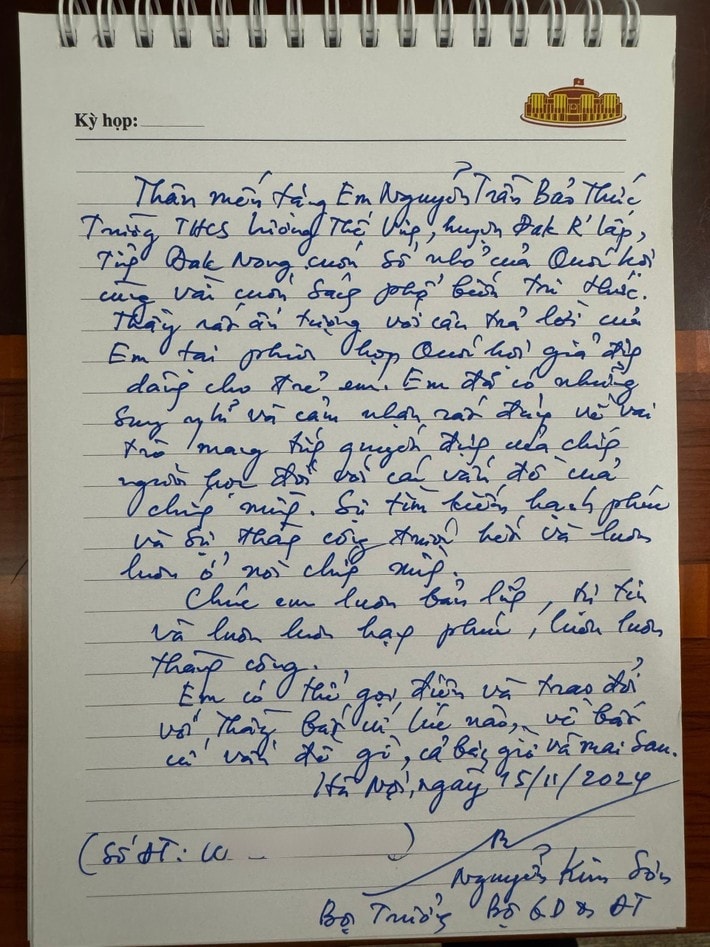 Kỳ họp:
Thân mến tặng Em Nguyễn Trần Bảo Thức
Trường THCS Lương Thế Vinh, huyện Đak R'lấp,
Tỉnh Đak Nong cuốn sổ nhỏ của Quốc hội
cùng vài cuốn sách phổ biến tri thức.
Thầy rất ấn tượng với câu trả lời của
Em tại phiên họp Quốc hội giả định
dành cho trẻ em. Em đã có những
suy nghĩ và cảm nhận rất đúng về vai
trò mang tính quyết định của chính
người học đối với các vấn đề của
chính mình. Sự tìm kiếm hạnh phúc
và sự thành công trước hết và luôn
luôn ở nơi chính mình.
Chúc em luôn bản lĩnh, tự tin
và luôn luôn hạnh phúc, luôn luôn
thành công.
Em có thể gọi điện và trao đổi
với Thầy bất cứ lúc nào, về bất
cứ vấn đề gì, cả bây giờ và mai sau.
Hà Nội, ngày 15/11/2024
(Số ĐT:
Nguyễn Kim Sơn
Bộ Trưởng Bộ GD & ĐT